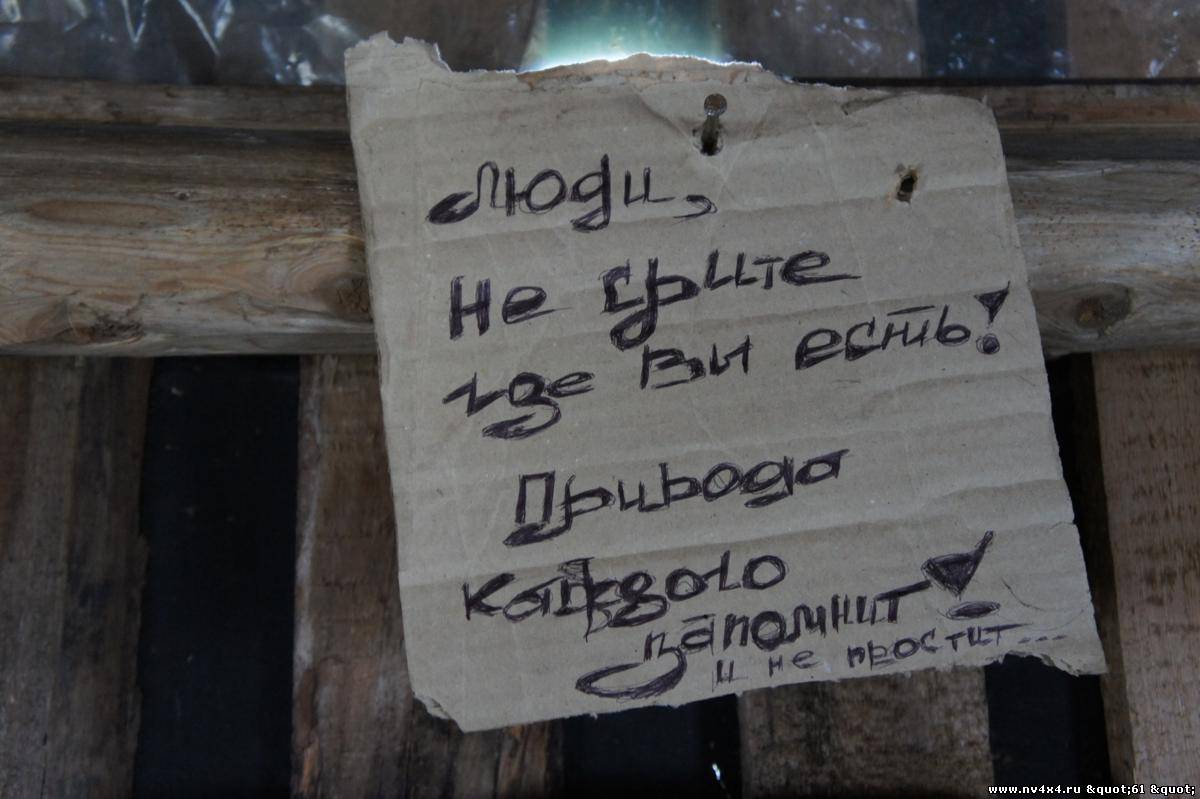 Люди,
Не срите
где вы есть!
Природа
каждого
запомнит!
и не простит...
www.nv4x4.ru &quot;61 &quot;